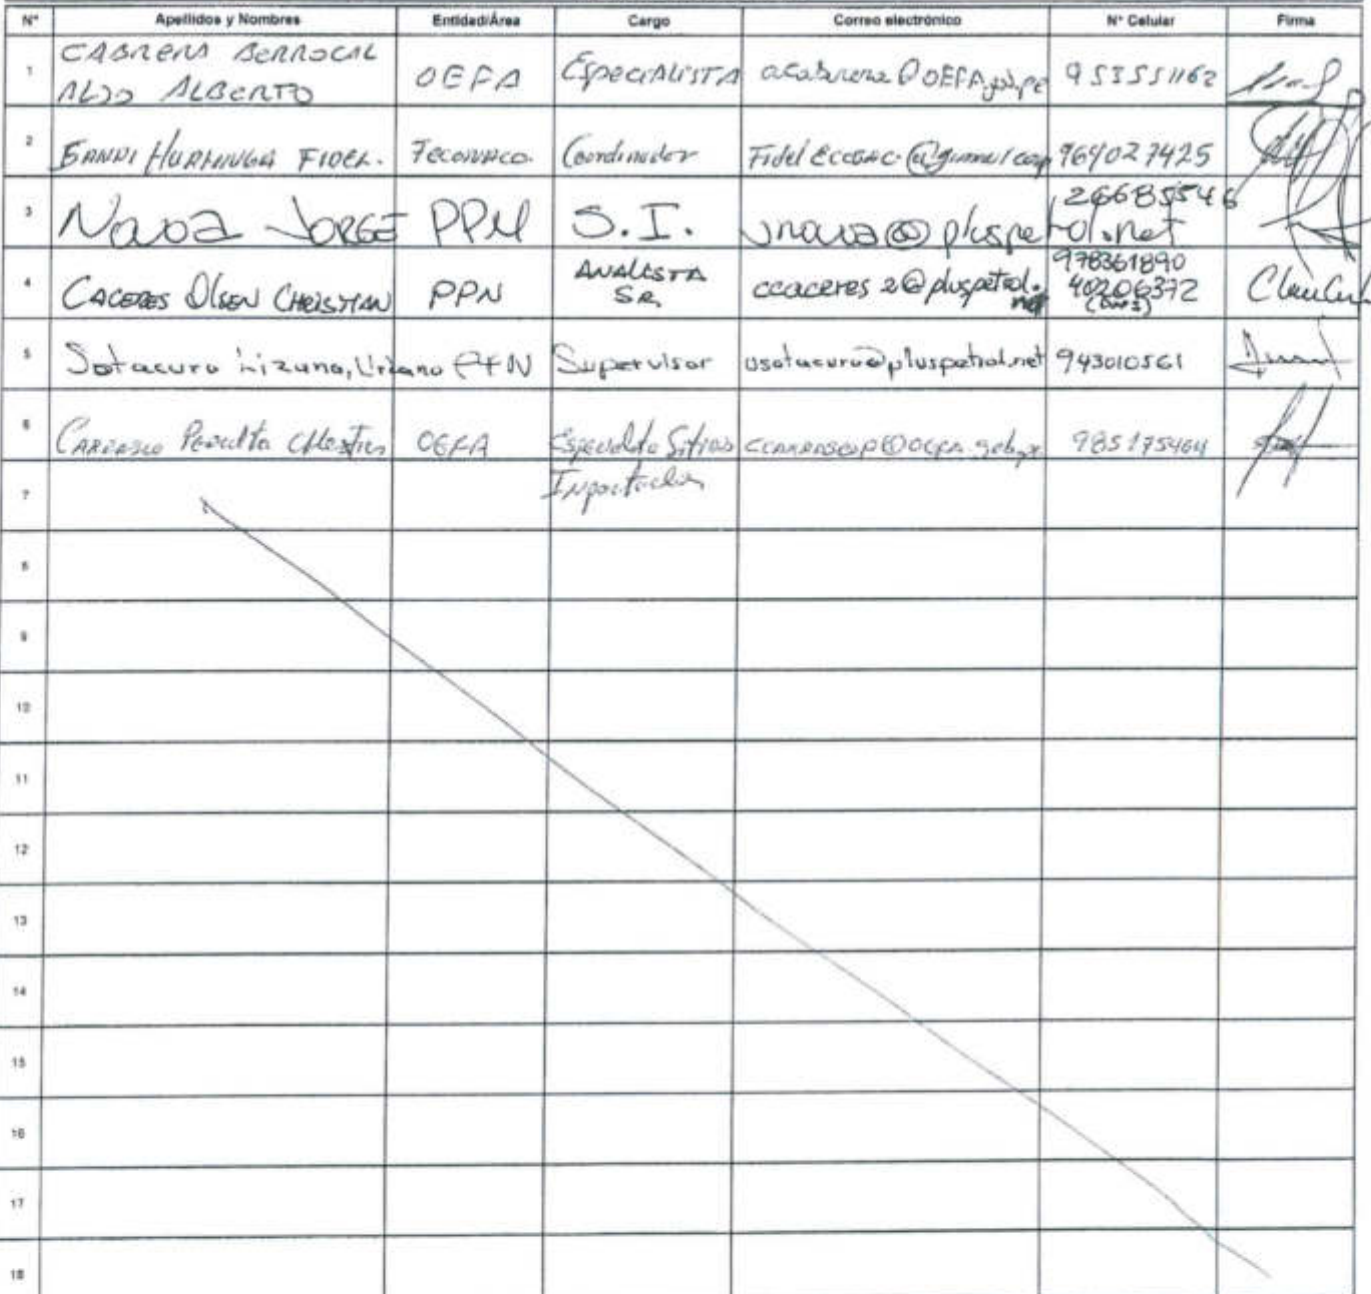 N° Apellidos y Nombres Entidad/Área Cargo Correo electrónico N° Celular Firma
1 CABRERA BERROCAL ALDO ALBERTO OEFA Especialista acabrera@OEFA.gob.pe 953551162
2 FIDEL. Feconaco. Coordinador 964027425
3 Nova Jorge PPN S.I. jnava@pluspetrol.net 26685546
4 CACERES OLSEN CHRISTIAN PPN ANALISTA SR. ccaceres2@pluspetrol.net 978361890 40206372
5 Sotacuro Lizana, Urbano PPN Supervisor usotacuro@pluspetrol.net 943010561
6 Carrasco Peralta OEFA Sitios 985175464
7 Impactados
8
9
10
11
12
13
14
15
16
17
18